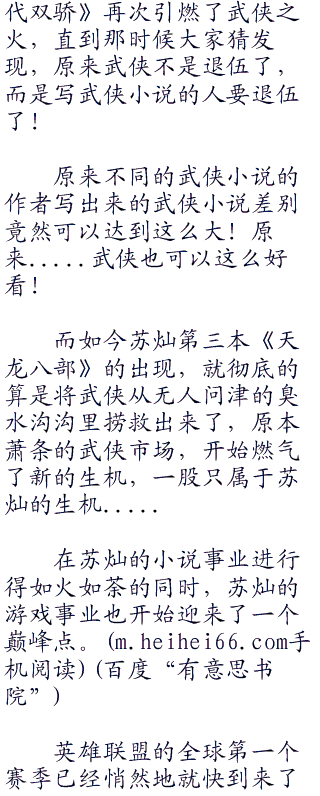 代双骄》再次引燃了武侠之
火，直到那时候大家猜发
现，原来武侠不是退伍了，
而是写武侠小说的人要退伍
了！
原来不同的武侠小说的
作者写出来的武侠小说差别
竟然可以达到这么大！原
来.....武侠也可以这么好
看！
而如今苏灿第三本《天
龙八部》的出现，就彻底的
算是将武侠从无人问津的臭
水沟沟里捞救出来了，原本
萧条的武侠市场，开始燃气
了新的生机，一股只属于苏
灿的生机.....
在苏灿的小说事业进行
得如火如荼的同时，苏灿的
游戏事业也开始迎来了一个
巅峰点。(m.heihei66.com手
机阅读)(百度“有意思书
院”)
英雄联盟的全球第一个
赛季已经悄然地就快到来了